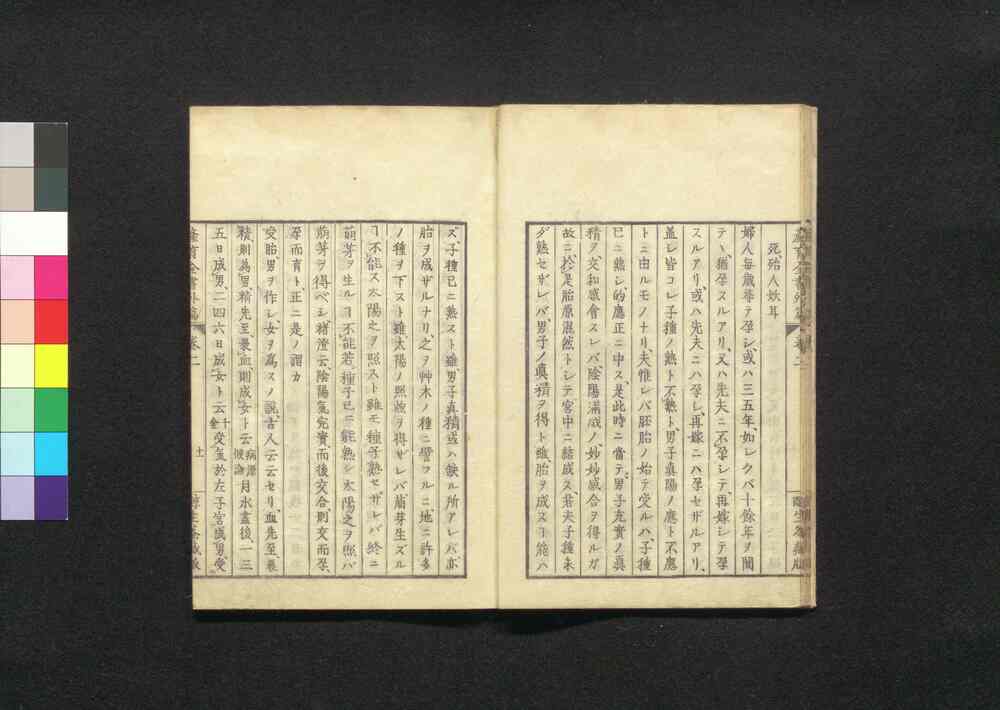 死殆人妖耳
婦人毎歳尋テ孕シ、或ハ三五年、如シクハ十餘年ヲ間
テヽ、猶孕スルアリ、又ハ先夫ニ不孕シテ、再嫁シテ孕
スルアリ、或ハ先夫ニハ孕シ、再嫁ニハ孕セザルアリ、
蓋シ皆コレ子種ノ熟ト不熟ト、男子眞陽ノ應ト不應
トニ由ルモノナリ、夫惟レバ胚胎ノ始テ受ルハ、子種
已ニ熟シ、的應正ニ中ス、是此時ニ當テ、男子充實ノ眞
精ヲ交和感會スレバ、陰陽滿咸ノ妙妙感合ヲ得ルガ
故ニ、於是胎原混然トシテ宮中ニ結成ス、若夫子種未
ダ熟セザレバ、男子ノ眞精ヲ得ト雖、胎ヲ成スヿ能ハ
ズ、子種已ニ熟スト雖、男子眞精或ハ缺ル所アレバ亦
胎ヲ成ザルナリ、之ヲ艸木ノ種ニ譬フルニ、地ニ許多
ノ種ヲ下スト雖、太陽ノ照煖ヲ得ザレバ、萠芽生ズル
ヿ不能ス、太陽之ヲ照スト雖モ、種子熟セザレバ、終ニ
萠芽ヲ生ルヿ不能、若種子已ニ能熟シ、太陽之ヲ照バ
萠芽ヲ得ベシ、褚澄云、陰陽氣完實、而後交合、則交而孕、
孕而育ト、正ニ是ノ謂カ
受胎男ヲ作シ、女ヲ爲スノ説、古人云云セリ、血先至裹
精、則爲男、精先至裹血、則成女ト云 病源候論 月水盡後、一三
五日成男、二四六日成女ト云 千金 受氣於左子宮成男、受
産育全書外篇 卷二 十一